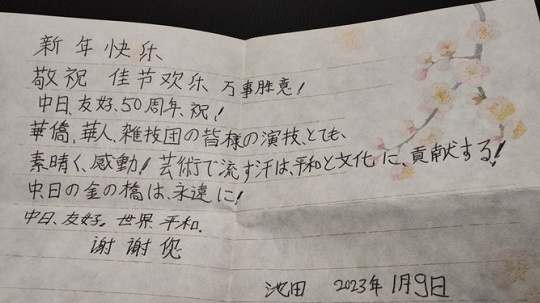 新年快乐
敬祝 佳节欢乐 万事胜意!
中日、友好、50周年、祝!
華僑、華人、雑技団の皆様の演技、とても、
素晴く、感動!芸術で流す汗は、平和と文化に、貢献する!
中日の金の橋は、永遠に!
中日、友好。世界、平和。
谢谢您
池田 2023年1月9日